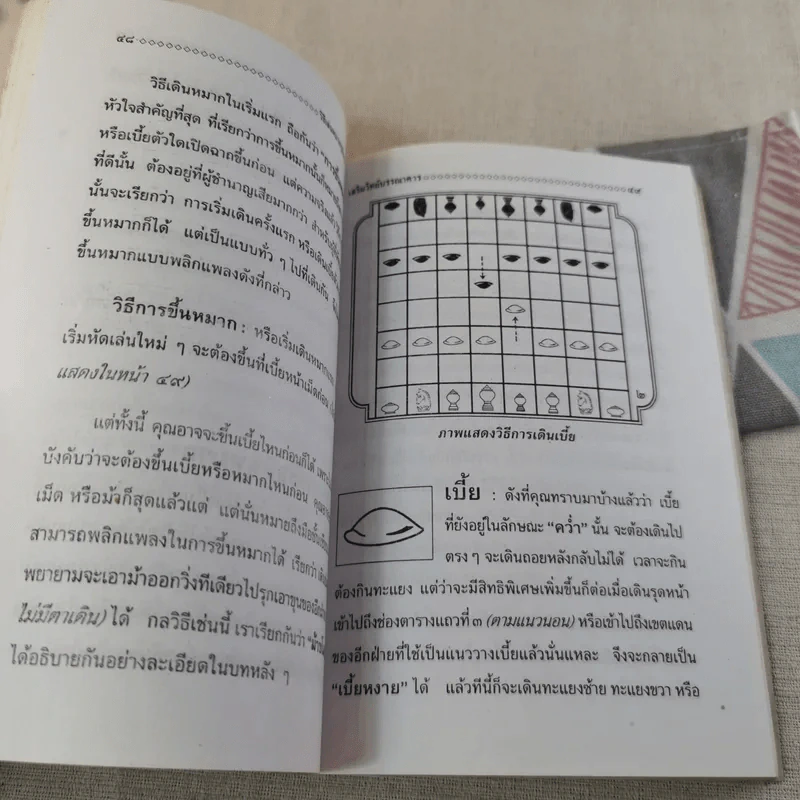 ๔๘
วิธีเดินหมากในเริ่มแรก ถือกันว่า
หัวใจสำคัญที่สุด ที่เรียกว่าการขึ้นหมากนั้น
หรือเบี้ยตัวใดเปิดฉากขึ้นก่อน แต่ความจริงแล้ว
ที่ดีนั้น ต้องอยู่ที่ผู้ชำนาญเสียมากกว่า
นั้นจะเรียกว่า การเริ่มเดินครั้งแรก หรือเดิน
ขึ้นหมากก็ได้ แต่เป็นแบบทั่ว ๆ ไปที่เดินกัน
ขึ้นหมากแบบพลิกแพลงดังที่กล่าว
วิธีการขึ้นหมาก : หรือเริ่มเดินหมาก
เริ่มหัดเล่นใหม่ ๆ จะต้องขึ้นที่เบี้ยหน้าเม็ดก่อน
แสดงในหน้า ๔๙)
แต่ทั้งนี้ คุณอาจจะขึ้นเบี้ยไหนก่อนก็ได้
บังคับว่าจะต้องขึ้นเบี้ยหรือหมากไหนก่อน
เม็ด หรือม้าก็สุดแล้วแต่ แต่นั่นหมายถึงมือชั้น
สามารถพลิกแพลงในการขึ้นหมากได้ เรียกว่า
พยายามจะเอาม้าออกวิ่งทีเดียวไปรุกเอาขุนของ
ไม่มีตาเดิน) ได้ กลวิธีเช่นนี้ เราเรียกกันว่า
ได้อธิบายกันอย่างละเอียดในบทหลัง ๆ
เสริมวิทย์บรรณาคาร ๔๙
๒
ภาพแสดงวิธีการเดินเบี้ย
เบี้ย : ดังที่คุณทราบมาบ้างแล้วว่า เบี้ย
ที่ยังอยู่ในลักษณะ “คว่ำ” นั้น จะต้องเดินไป
ตรง ๆ จะเดินถอยหลังกลับไม่ได้ เวลาจะกิน
ต้องกินทะแยง แต่ว่าจะมีสิทธิพิเศษเพิ่มขึ้นก็ต่อเมื่อเดินรุดหน้า
เข้าไปถึงช่องตารางแถวที่ ๓ (ตามแนวนอน) หรือเข้าไปถึงเขตแดน
ของอีกฝ่ายที่ใช้เป็นแนววางเบี้ยแล้วนั่นแหละ จึงจะกลายเป็น
“เบี้ยหงาย” ได้ แล้วทีนี้ก็จะเดินทะแยงซ้าย ทะแยงขวา หรือ